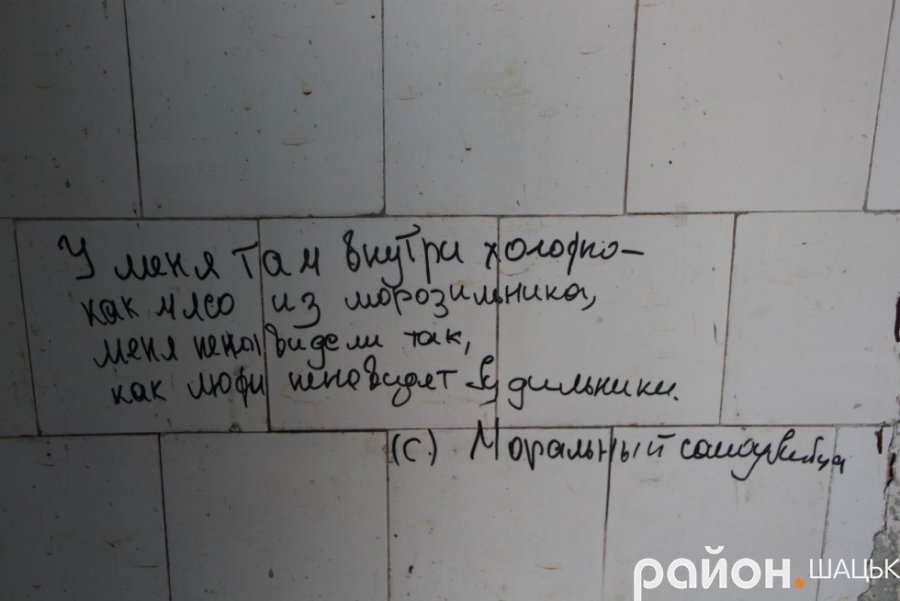 У меня там внутри холодно–
как мясо из морозильника,
меня ненавидели так,
как люди ненавидят будильники.
(с.) Моральный самоубийца
район.ШАЦЬК